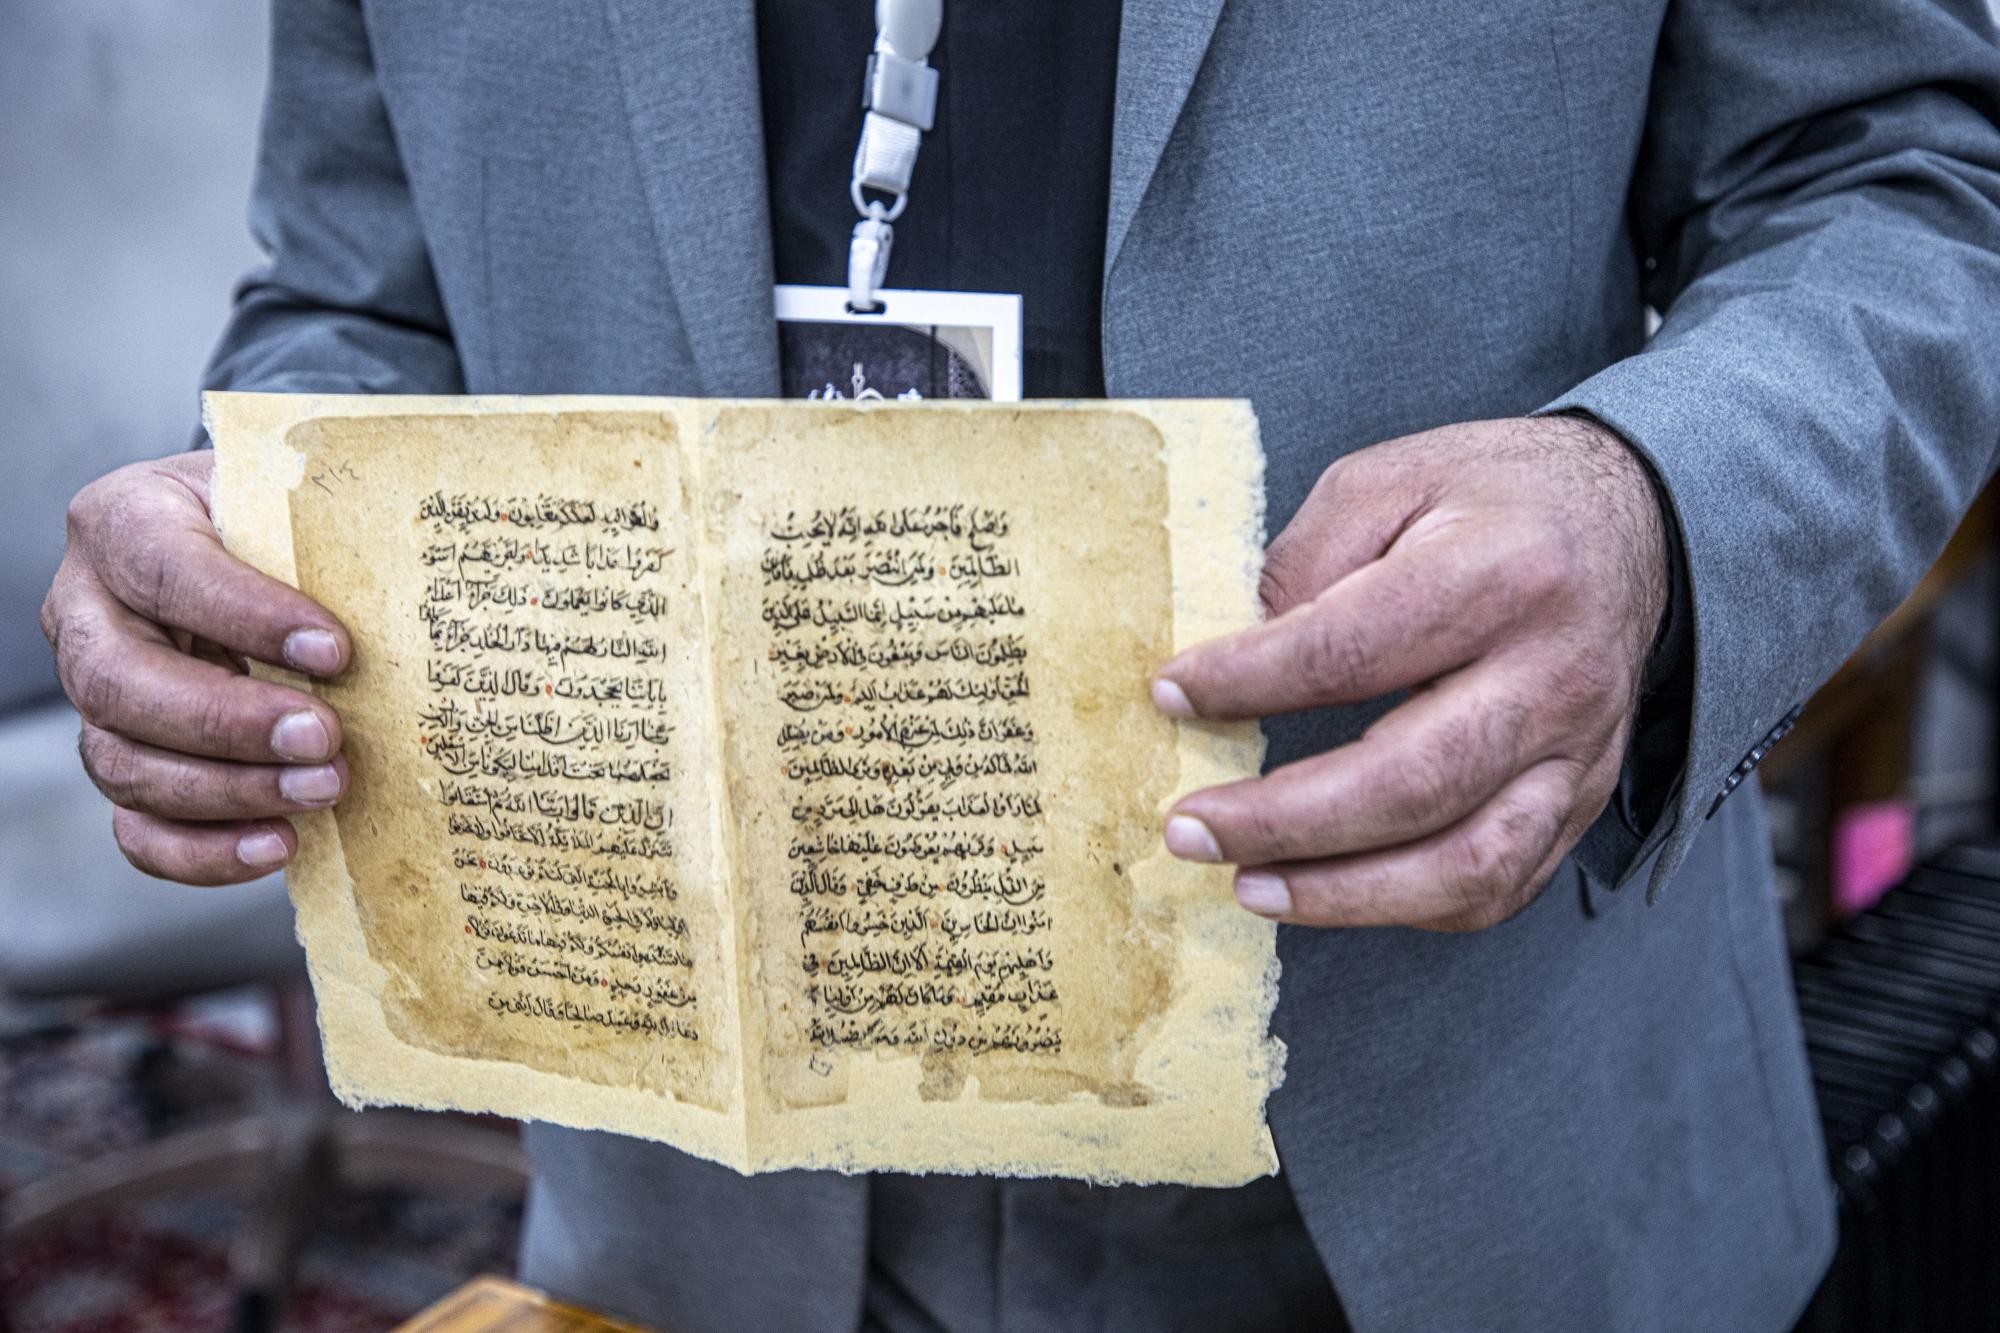 وَاَصْلَحَ فَاَجْرُهُ عَلَى اللهِ اِنَّهُ لَا يُحِبُّ
الظَّالِمِينَ وَلَمَنِ انْتَصَرَ بَعْدَ ظُلْمِهِ فَاُولٰئِكَ
مَا عَلَيْهِمْ مِنْ سَبِيلٍ اِنَّمَا السَّبِيلُ عَلَى الَّذِينَ
يَظْلِمُونَ النَّاسَ وَيَبْغُونَ فِي الْاَرْضِ بِغَيْرِ
الْحَقِّ اُولٰئِكَ لَهُمْ عَذَابٌ اَلِيمٌ وَلَمَنْ صَبَرَ
وَغَفَرَ اِنَّ ذَلِكَ لَمِنْ عَزْمِ الْاُمُورِ وَمَنْ يُضْلِلِ
اللهُ فَمَا لَهُ مِنْ وَلِيٍّ مِنْ بَعْدِهِ وَتَرَى الظَّالِمِينَ
لَمَّا رَاَوُا الْعَذَابَ يَقُولُونَ هَلْ اِلَى مَرَدٍّ مِنْ
سَبِيلٍ وَتَرٰيهُمْ يُعْرَضُونَ عَلَيْهَا خَاشِعِينَ
مِنَ الذُّلِّ يَنْظُرُونَ مِنْ طَرْفٍ خَفِيٍّ وَقَالَ الَّذِينَ
اٰمَنُوا اِنَّ الْخَاسِرِينَ الَّذِينَ خَسِرُوا اَنْفُسَهُمْ
وَاَهْلِيهِمْ يَوْمَ الْقِيٰمَةِ اَلَا اِنَّ الظَّالِمِينَ فِي
عَذَابٍ مُقِيمٍ وَمَا كَانَ لَهُمْ مِنْ اَوْلِيَاءَ
يَنْصُرُونَهُمْ مِنْ دُونِ اللهِ وَمَنْ يُضْلِلِ اللهُ
وَالْغَوْا فِيهِ لَعَلَّكُمْ تَغْلِبُونَ فَلَنُذِيقَنَّ الَّذِينَ
كَفَرُوا عَذَابًا شَدِيدًا وَلَنَجْزِيَنَّهُمْ اَسْوَءَ
الَّذِي كَانُوا يَعْمَلُونَ ذَلِكَ جَزَاءُ اَعْدَاءِ
اللهِ النَّارُ لَهُمْ فِيهَا دَارُ الْخُلْدِ جَزَاءً بِمَا كَانُوا
بِاٰيَاتِنَا يَجْحَدُونَ وَقَالَ الَّذِينَ كَفَرُوا
رَبَّنَا اَرِنَا الَّذَيْنِ اَضَلَّانَا مِنَ الْجِنِّ وَالْاِنْسِ
نَجْعَلْهُمَا تَحْتَ اَقْدَامِنَا لِيَكُونَا مِنَ الْاَسْفَلِينَ
اِنَّ الَّذِينَ قَالُوا رَبُّنَا اللهُ ثُمَّ اسْتَقَامُوا
تَتَنَزَّلُ عَلَيْهِمُ الْمَلَائِكَةُ اَلَّا تَخَافُوا وَلَا تَحْزَنُوا
وَاَبْشِرُوا بِالْجَنَّةِ الَّتِي كُنْتُمْ تُوعَدُونَ نَحْنُ
اَوْلِيَاؤُكُمْ فِي الْحَيٰوةِ الدُّنْيَا وَفِي الْاٰخِرَةِ وَلَكُمْ فِيهَا
مَا تَشْتَهِي اَنْفُسُكُمْ وَلَكُمْ فِيهَا مَا تَدَّعُونَ نُزُلًا
مِنْ غَفُورٍ رَحِيمٍ وَمَنْ اَحْسَنُ قَوْلًا مِمَّنْ
دَعَا اِلَى اللهِ وَعَمِلَ صَالِحًا وَقَالَ اِنَّنِي مِنَ